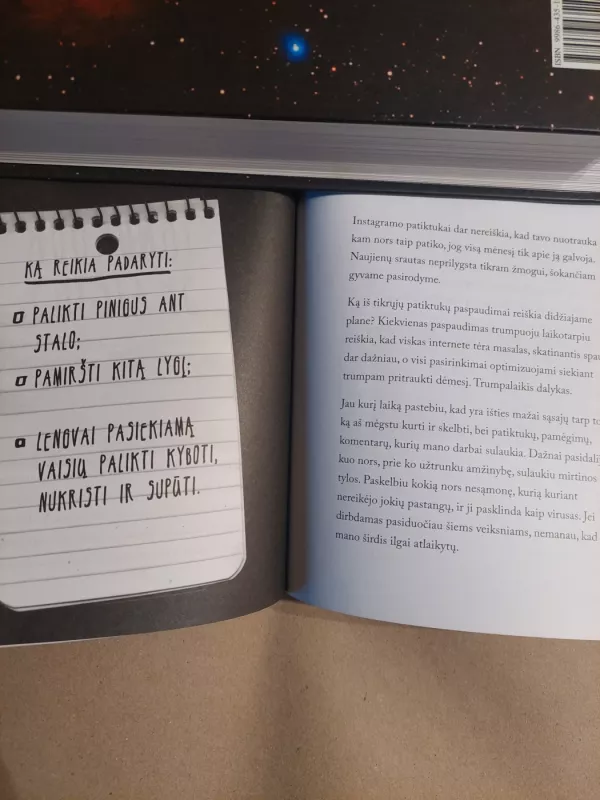 ISBN 9986-435-1
KĄ REIKIA PADARYTI:
PALIKTI PINIGUS ANT
STALO;
PAMIRŠTI KITĄ LYGĮ;
LENGVAI PASIEKIAMĄ
VAISIŲ PALIKTI KYBOTI,
NUKRISTI IR SUPŪTI.
Instagramo patiktukai dar nereiškia, kad tavo nuotrauka
kam nors taip patiko, jog visą mėnesį tik apie ją galvoja.
Naujienų srautas neprilygsta tikram žmogui, šokančiam
gyvame pasirodyme.
Ką iš tikrųjų patiktukų paspaudimai reiškia didžiajame
plane? Kiekvienas paspaudimas trumpuoju laikotarpiu
reiškia, kad viskas internete tėra masalas, skatinantis
dar dažniau, o visi pasirinkimai optimizuojami siekiant
trumpam pritraukti dėmesį. Trumpalaikis dalykas.
Jau kurį laiką pastebiu, kad yra išties mažai sąsajų tarp to
ką aš mėgstu kurti ir skelbti, bei patiktukų, pamėgimų,
komentarų, kurių mano darbai sulaukia. Dažnai
kuo nors, prie ko užtrunku amžinybę, sulaukiu mirtinos
tylos. Paskelbiu kokią nors nesąmonę, kurią kuriant
nereikėjo jokių pastangų, ir ji pasklinda kaip virusas. Jei
dirbdamas pasiduočiau šiems veiksniams, nemanau, kad
mano širdis ilgai atlaikytų.